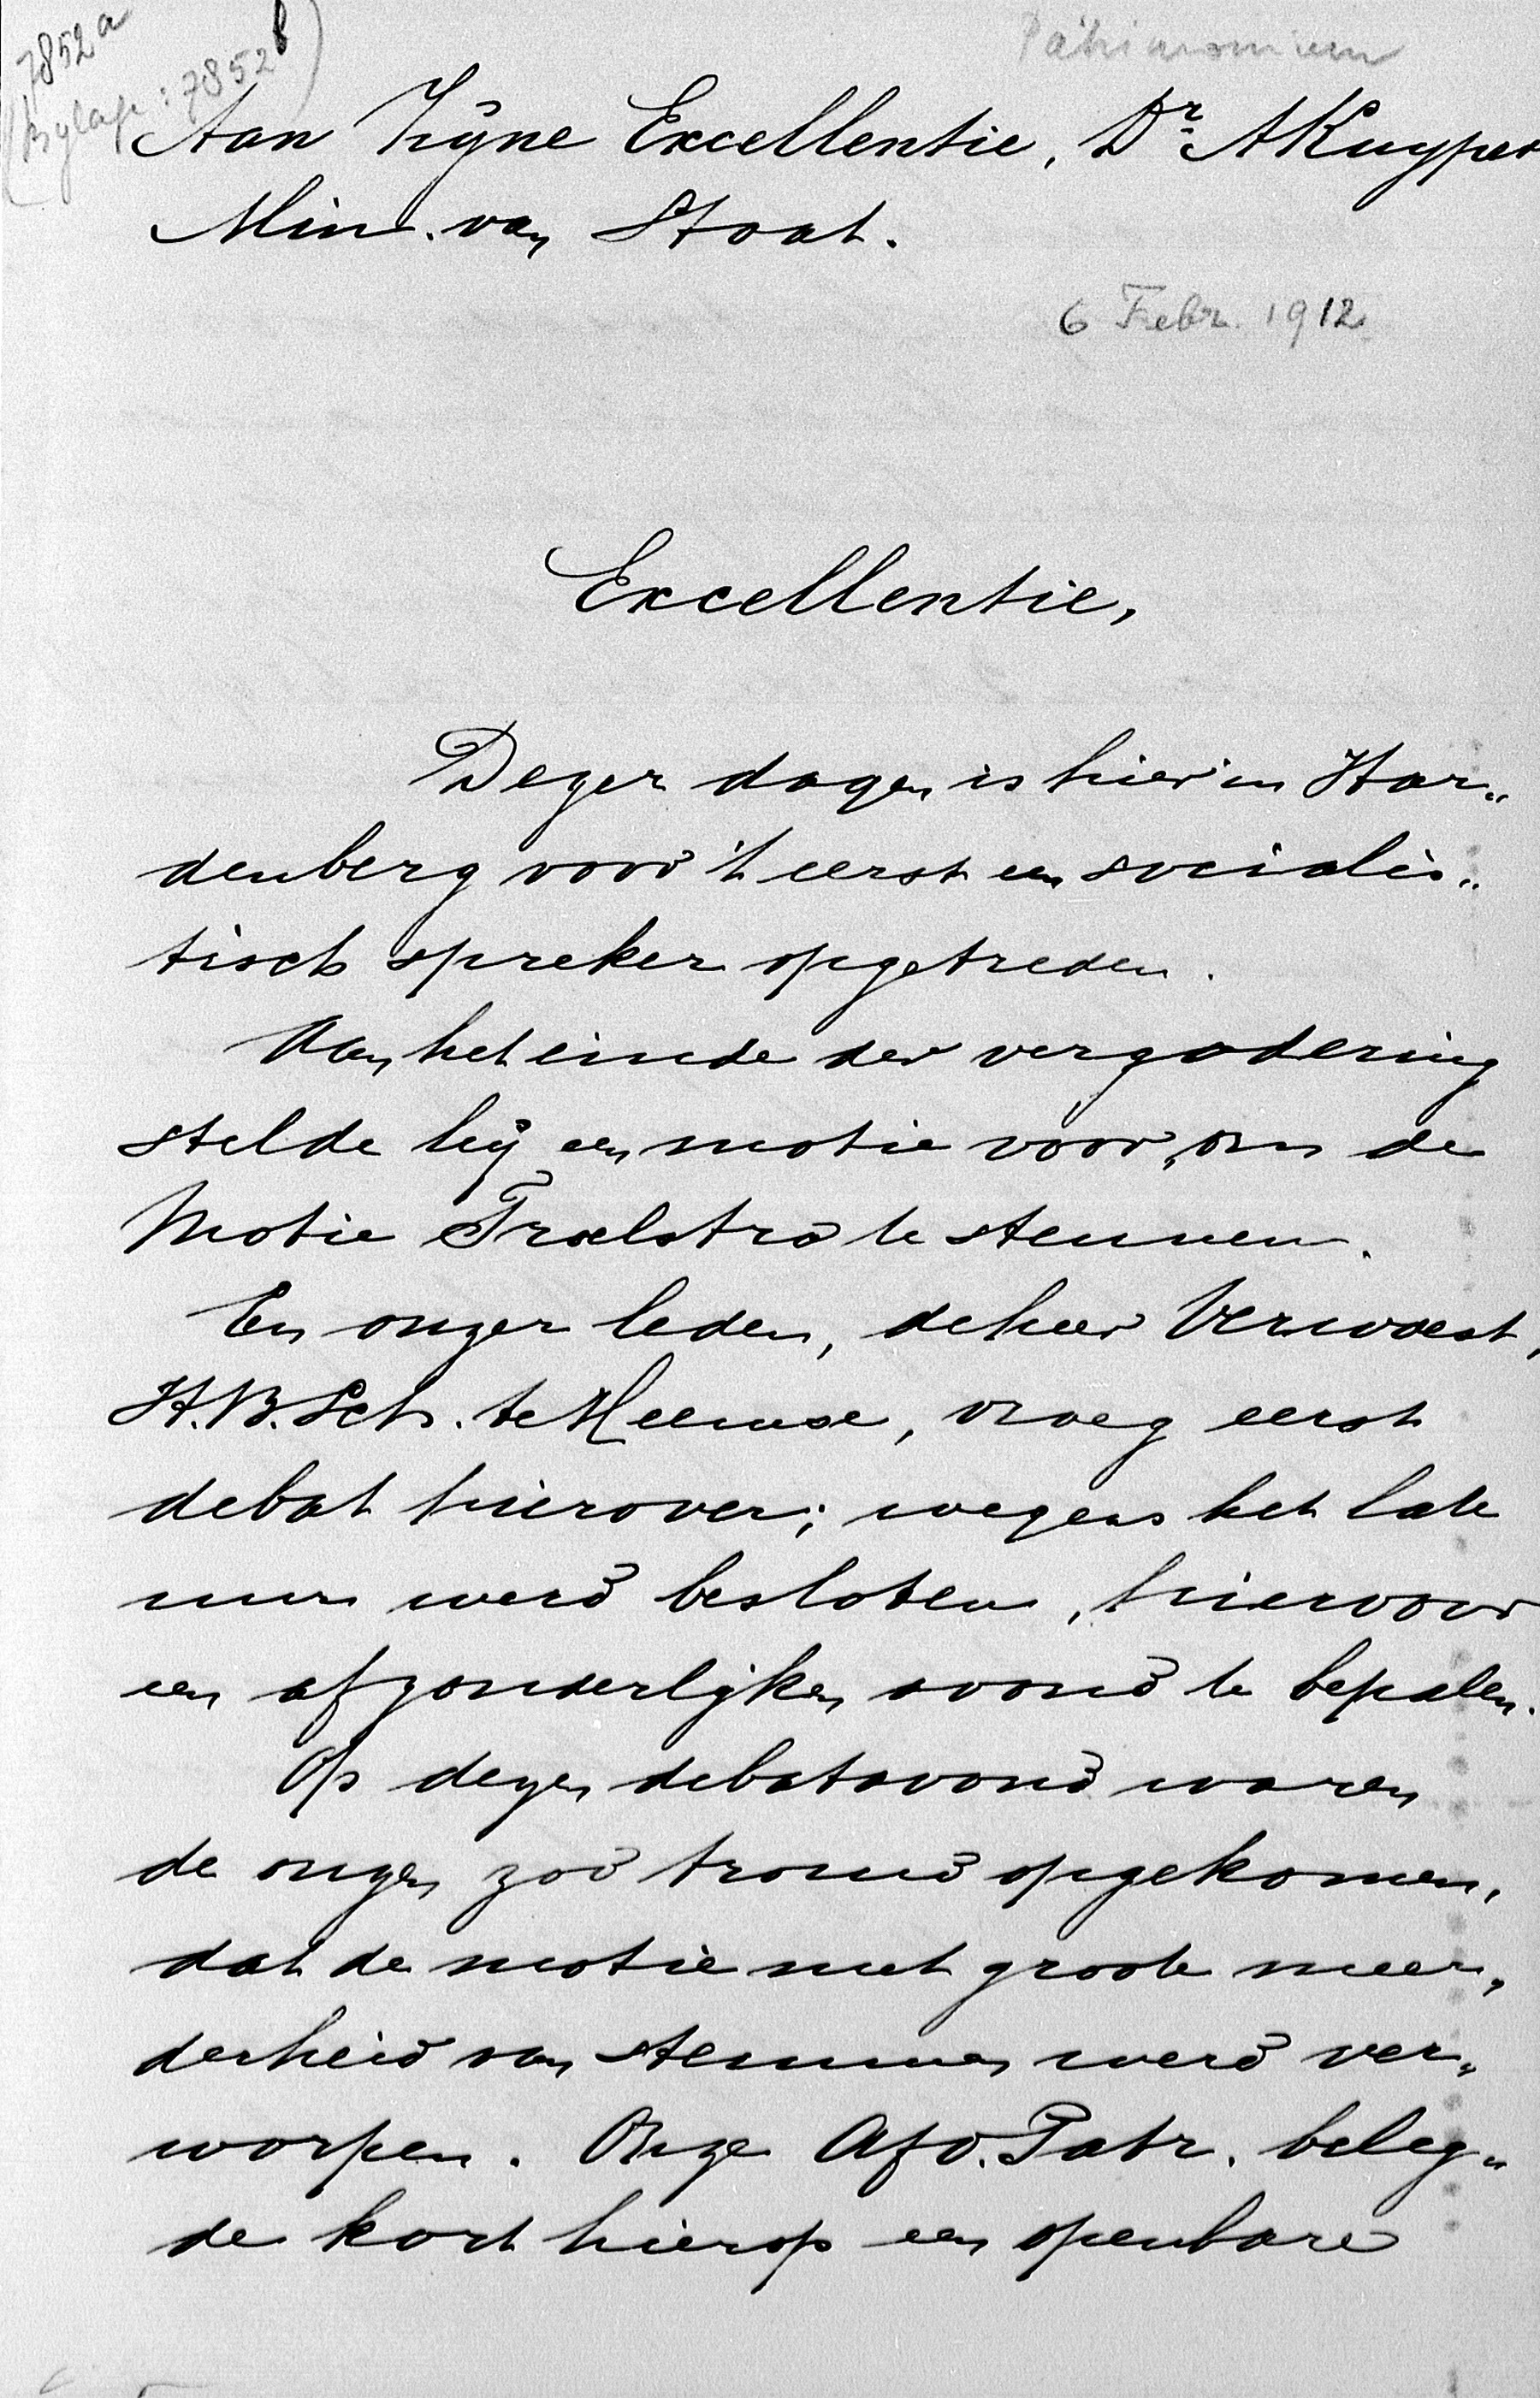 7852a
(Bylage: 7852b)
Patrimonium
Aan Zijne Excellentie, Dr. A Kuyper
Min. van Staat.
6 Febr. 1912
Excellentie,
Dezer dagen is hier in Har„
denberg voor 't eerst een socialis„
tisch spreker opgetreden.
Aan het einde der vergadering
stelde hij een motie voor, om de
Motie Troelstra te steunen.
Een onzer leden, de heer Verwoest,
H.B.Sch. te Heemse, vroeg eerst
debat hierover; wegens het late
uur werd besloten, hiervoor
een afzonderlijken avond te bepalen.
Op dezen debatavond waren
de onzen zoo trouw opgekomen,
dat de motie met groote meer„
derheid van stemmen werd ver„
worpen. Onze Afd. Patr. beleg„
de kort hierop een openbare